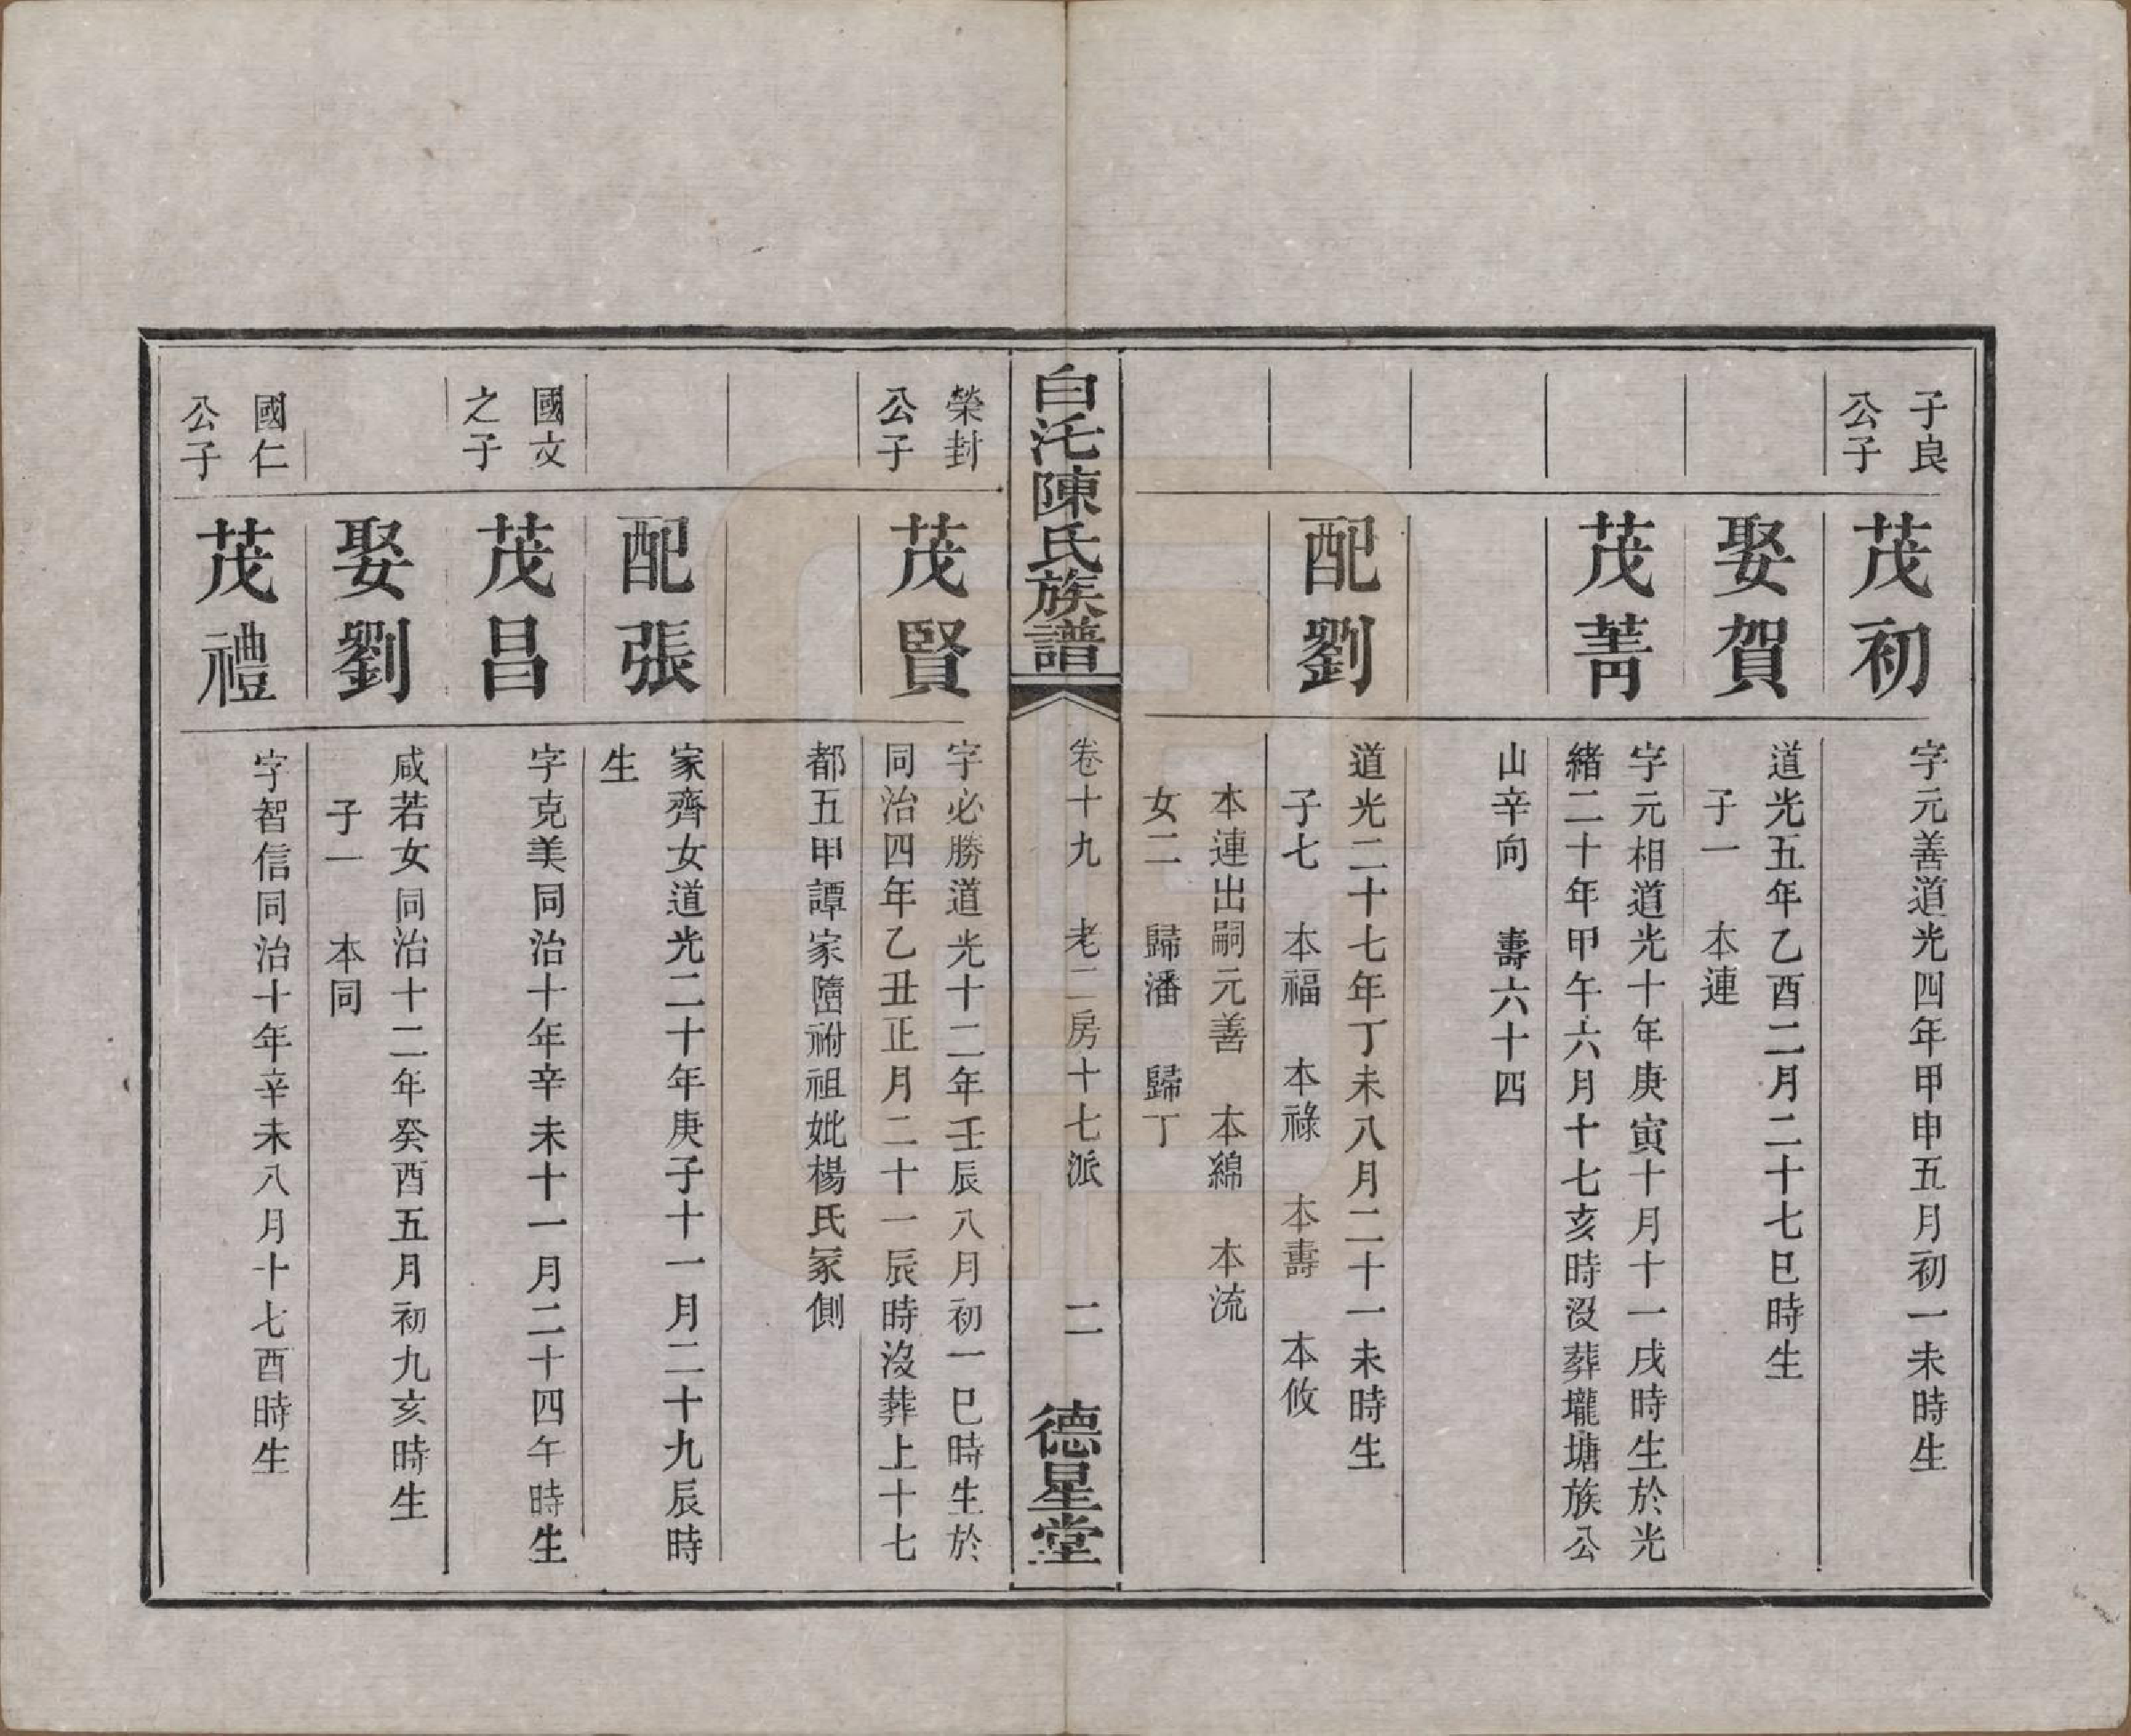 子良
公子
茂初
字元善道光四年甲申五月初一未時生
娶賀
道光五年乙酉二月二十七巳時生
子一　本連
茂菁
字元相道光十年庚寅十月十一戌時生於光
緒二十年甲午六月十七亥時沒葬壠塘族公
山辛向　壽六十四
配劉
道光二十七年丁未八月二十一未時生
子七　本福　本祿　本壽　本攸
本連出嗣元善　本綿　本流
女二　歸潘　歸丁
白沱陳氏族譜
卷十九　老二房十七派　二
德星堂
榮封
公子
茂賢
字必勝道光十二年壬辰八月初一巳時生於
同治四年乙丑正月二十一辰時沒葬上十七
都五甲譚家隋祔祖妣楊氏冢側
配張
家齊女道光二十年庚子十一月二十九辰時
生
國文
之子
茂昌
字克美同治十年辛未十一月二十四午時生
娶劉
咸若女同治十二年癸酉五月初九亥時生
子一　本同
國仁
公子
茂禮
字智信同治十年辛未八月十七酉時生